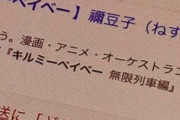 ミーベイベー】禰豆子（ねず
う。漫画・アニメ・オーケストラコ
『キルミーベイベー 無限列車編』
送に